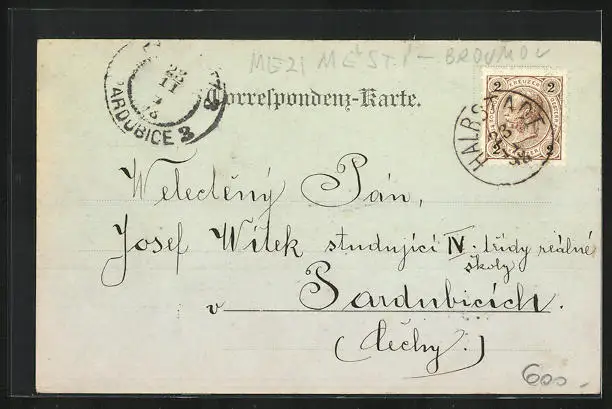 MEZIMĚSTÍ - BROUMOV
PARDUBICE 3
23
11
98
Correspondenz-Karte.
2 KREUZER 2
2 2
HALBSTADT
23
98
Velectěný Pán,
Josef Wítek studující IV. třídy reálné
školy
v Pardubicích.
(Čechy.)
600.-